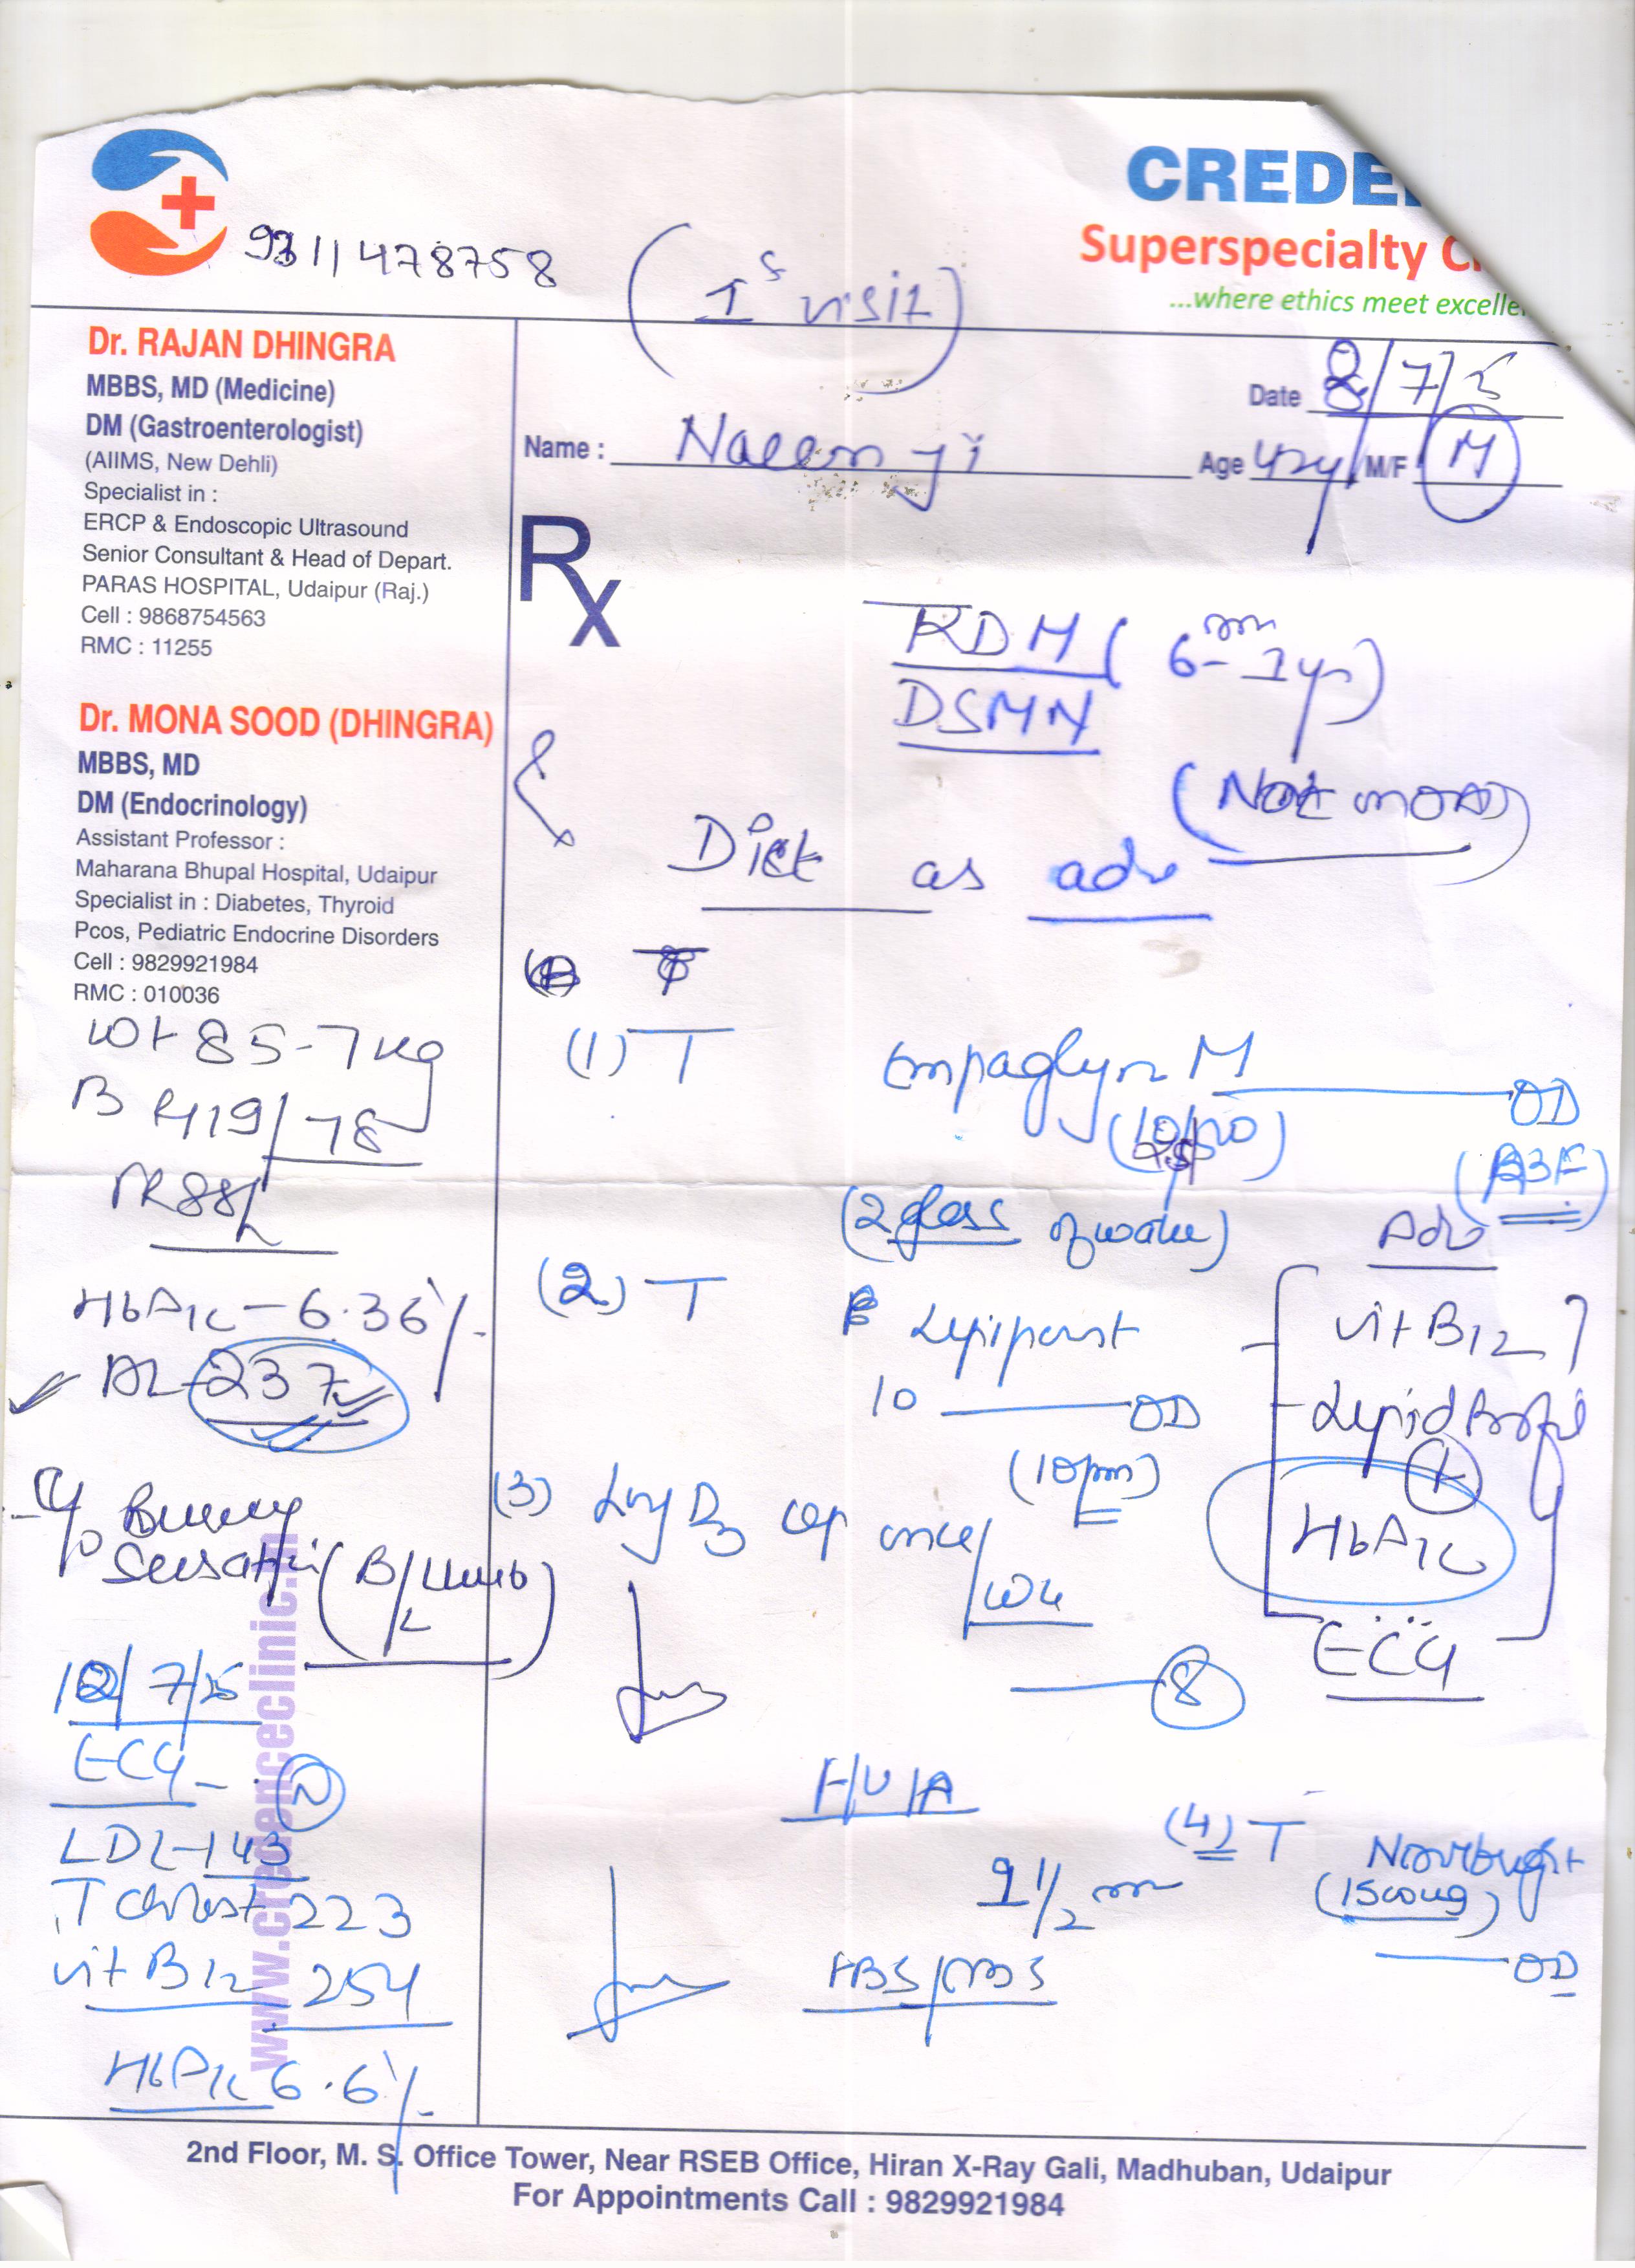 CREDE
Superspecialty C
...where ethics meet excelle
9311478758
(1s visit)
Dr. RAJAN DHINGRA
MBBS, MD (Medicine)
DM (Gastroenterologist)
(AIIMS, New Dehli)
Specialist in :
ERCP & Endoscopic Ultrasound
Senior Consultant & Head of Depart.
PARAS HOSPITAL, Udaipur (Raj.)
Cell : 9868754563
RMC : 11255
Dr. MONA SOOD (DHINGRA)
MBBS, MD
DM (Endocrinology)
Assistant Professor :
Maharana Bhupal Hospital, Udaipur
Specialist in : Diabetes, Thyroid
Pcos, Pediatric Endocrine Disorders
Cell : 9829921984
RMC : 010036
Wt 85-7 kg
BP 119/78
PR 88/
HbA1c - 6.36%
237
C/o Burning
Sensation (B/L limb)
12/7/25
ECG - N
LDL-143
T cholest 223
Vit B12 254
HbA1c 6.6%
Date 8/7/25
Name : Naeem ji Age 42y M/F M
Rx
DSMN
Diet as adv
(1) T Empaglyn M OD
(BBF)
(2 glass of water)
(2) T
10 OD
(10pm)
(3) D3 cap once/
wk
8
Adv
Vit B12
Lipid Profil
HbA1c
ECG
F/U/A
1 1/2 m
(4) T
(1500ug)
OD
www.credenceclinic.in
2nd Floor, M. S. Office Tower, Near RSEB Office, Hiran X-Ray Gali, Madhuban, Udaipur
For Appointments Call : 9829921984